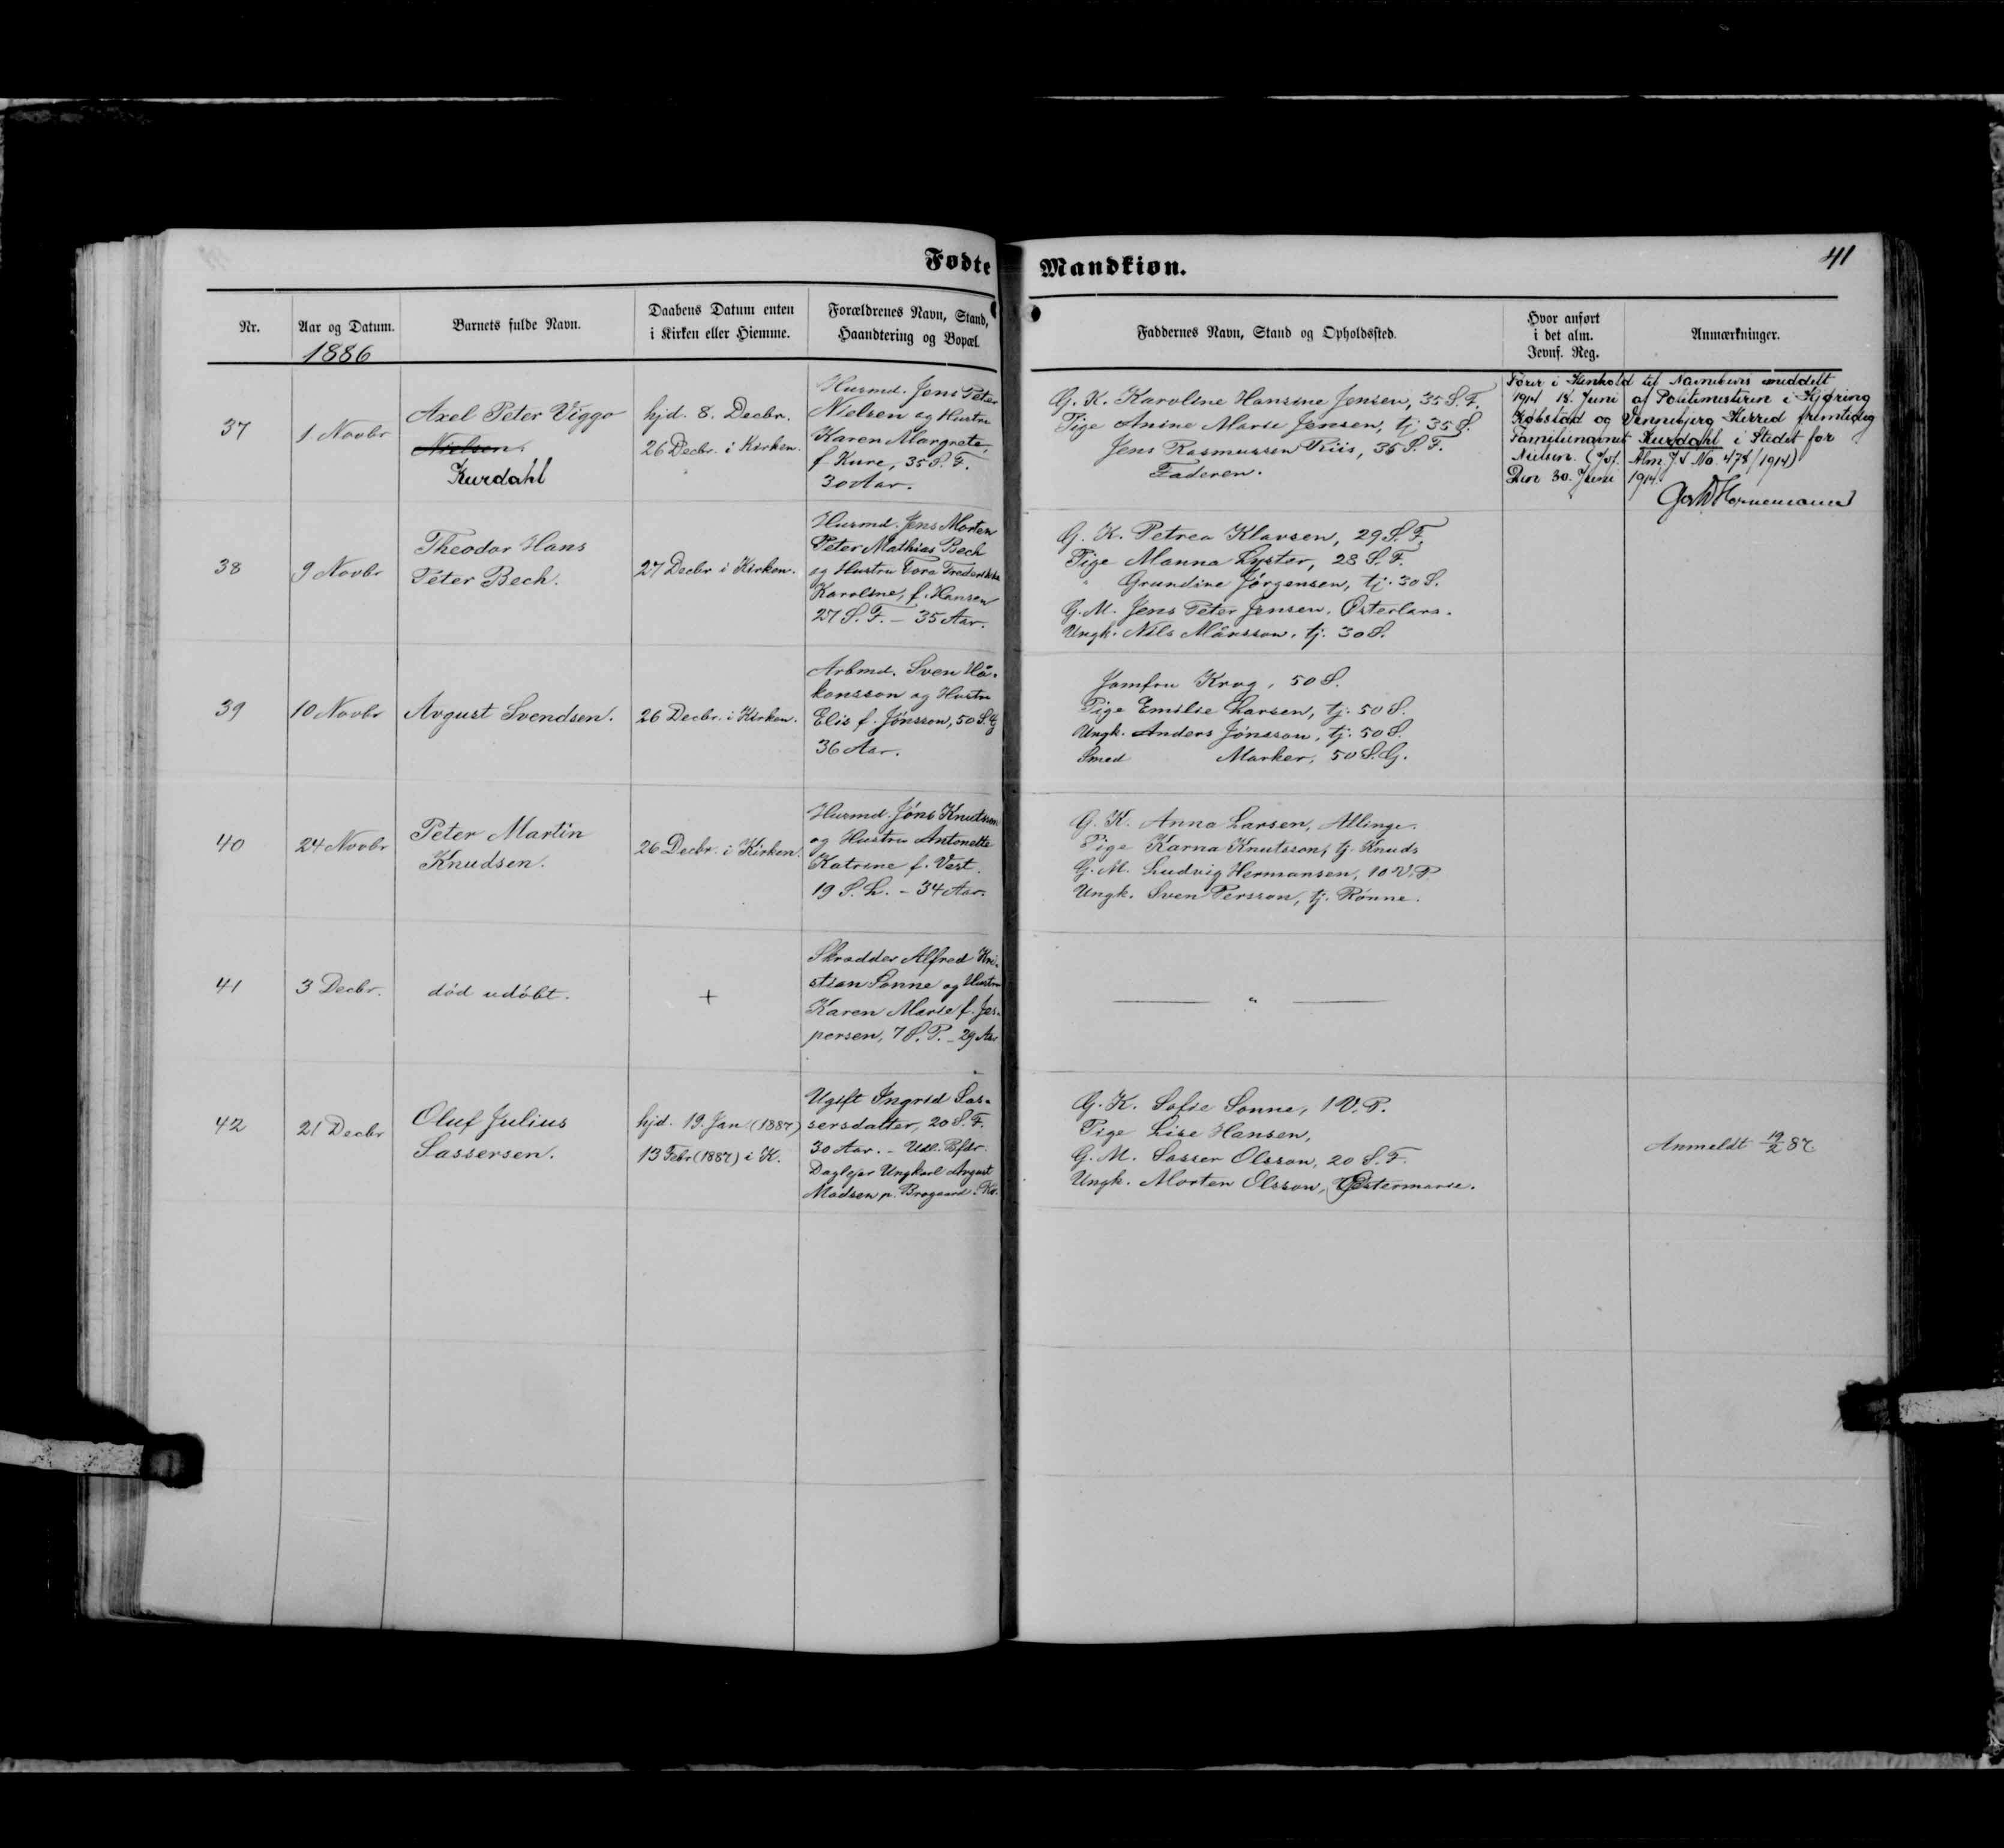 Fødte
Mandkiøn.
41
Nr.
Aar og Datum.
1886
Barnets fulde Navn.
Daabens Datum enten
i Kirken eller Hiemme.
Forældrenes Navn, Stand,
Haandtering og Bopæl.
Faddernes Navn, Stand og Opholdssted.
Hvor anført
i det alm.
Jevnf. Reg.
Anmærkninger.
37
1 Novbr
Axel Peter Viggo
Nielsen.
Kurdahl
hjd. 8. Decbr.
26 Decbr. i Kirken.
Husmd. Jens Peter
Nielsen og Hustru
Karen Margrete,
f. Kure, 35 S. F.
30 Aar.
G. K. Karoline Hansine Jensen, 35 S. F.
Pige Anine Marie Jensen, tj. 35 S.
Jens Rasmussen Riis, 36 S. F.
Faderen.
Fører i Henhold til Navnebevis meddelt
1914 18. Juni af Politimesteren i Hjøring
Købstad og Vennebjerg Herred fremtidig
Familienavnet Kurdahl i Stedet for
Nielsen. (Jvf. Alm. J. No. 478/1914)
Den 30. Juni 1914.
38
9 Novbr
Theodor Hans
Peter Bech.
27 Decbr i Kirken.
Husmd. Jens Morten
Peter Mathias Bech
og Hustru Tora Frederikke
Karoline, f. Hansen
27 S. F. – 35 Aar.
G. K. Petrea Klausen, 29 S. F.
Pige Manna Lyster, 28 S. F.
" Grundine Jørgensen, tj. 30 S.
G. M. Jens Peter Jensen, Østerlars.
Ungk. Nils Månsson, tj. 30 S.
39
10 Novbr
August Svendsen.
26 Decbr. i Kirken.
Arbmd. Sven Hå-
konsson og Hustru
Elis f. Jönsson, 50 S. G
36 Aar.
Jomfru Krag, 50 S.
Pige Emilie Larsen, tj. 50 S.
Ungk. Anders Jönsson, tj. 50 S.
Smed Marker, 50 S. G.
40
24 Novbr
Peter Martin
Knudsen.
26 Decbr. i Kirken.
Husmd. Jöns Knutsson
og Hustru Antonette
Katrine f. Vest.
19 S. L. – 34 Aar.
G. K. Anna Larsen, Allinge.
Pige Karna Knutsson, tj. Knuds
G. M. Ludvig Hermansen, 10 V. P.
Ungk. Sven Persson, tj. Rønne.
41
3 Decbr.
død udøbt.
+
Skrædder Alfred Kri-
stian Sonne og Hustru
Karen Marie f. Jes-
persen, 7 S. P. – 29 Aar
— " —
42
21 Decbr
Oluf Julius
Sassersen.
hjd. 19. Jan. (1887)
13 Febr (1887) i K.
Ugift Ingrid Sas-
sersdatter, 20 S. F.
30 Aar. – Udl. Bfdr.
Daglejer Ungkarl August
Madsen p. Brogaard. Kl.
G. K. Sofie Sonne, 1 V. P.
Pige Lise Hansen,
G. M. Sasser Olsson, 20 S. F.
Ungk. Morten Olsson, Østermarie.
Anmeldt 19/2 87